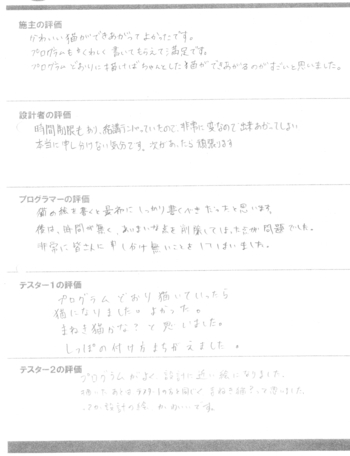 施主の評価
かわいい猫ができあがってよかったです。
プログラムもくわしく書いてもらえて満足です。
プログラムどおりに描けばちゃんとした猫ができあがるのがすごいと思いました。
設計者の評価
時間制限もあり、非常に変なので出来あがってしまい
本当に申し分けない気分です。次があったら頑張ります
プログラマーの評価
最初にしっかり書くべきだったと思います。
僕は、時間が無く、あいまいな点を削除してしまった点が問題でした。
非常に皆さんに申しわけ無いことをしてしまいました。
テスター1の評価
プログラムどおり描いていったら
猫になりました。よかった。
まねき猫かな?と思いました。
しっぽの付け方まちがえました。
テスター2の評価
プログラムがよく設計に近い絵になりました。
まねき猫だって思いました。
設計の絵かわいいです。